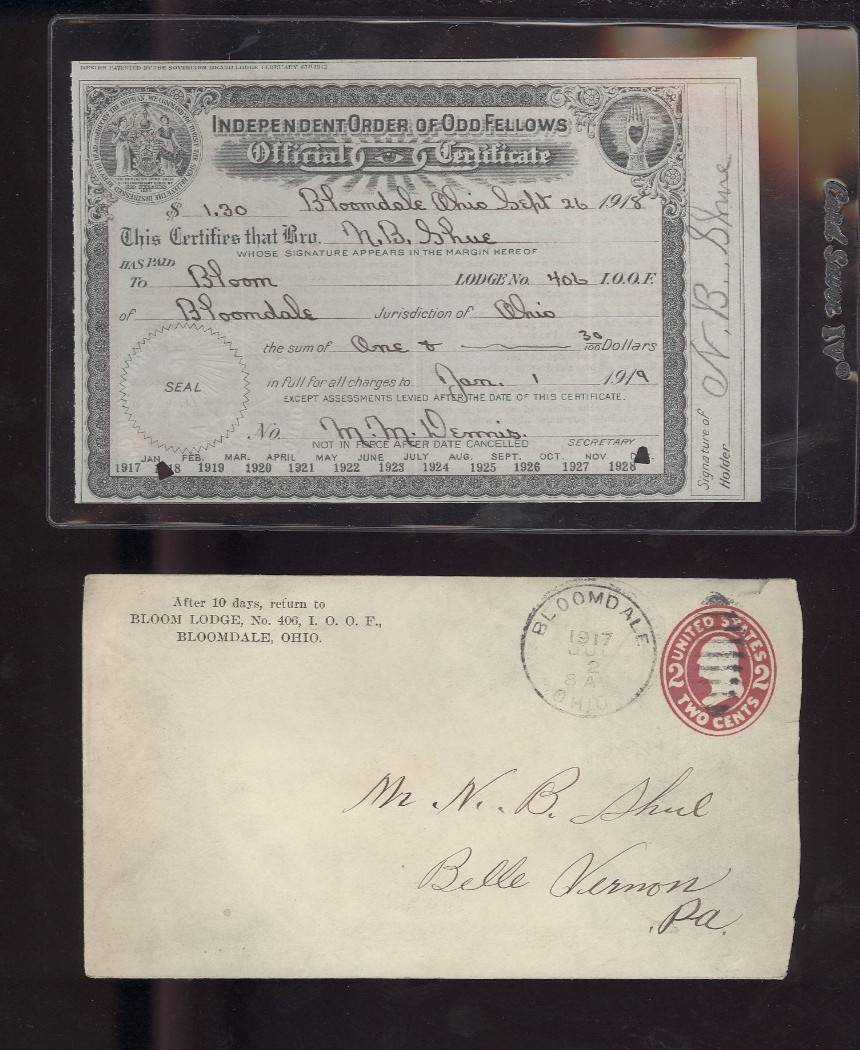 DESIGN PATENTED BY THE SOVEREIGN GRAND LODGE FEBRUARY
INDEPENDENT ORDER OF ODD FELLOWS
Official Certificate
$ 1.30 Bloomdale Ohio Sept 26 1918
This Certifies that Bro. N. B. Shue
WHOSE SIGNATURE APPEARS IN THE MARGIN HEREOF
HAS PAID
To Bloom LODGE No. 406 I.O.O.F.
of Bloomdale Jurisdiction of Ohio
the sum of One & 30/100 Dollars
SEAL
in full for all charges to Jan. 1 1919
EXCEPT ASSESSMENTS LEVIED AFTER THE DATE OF THIS CERTIFICATE.
No. M. M. Dennis.
NOT IN FORCE AFTER DATE CANCELLED SECRETARY
JAN. FEB. MAR. APRIL MAY JUNE JULY AUG. SEPT. OCT. NOV. D
1917 18 1919 1920 1921 1922 1923 1924 1925 1926 1927 1928
Signature of
Holder
N. B. Shue
After 10 days, return to
BLOOM LODGE, No. 406, I. O. O. F.,
BLOOMDALE, OHIO.
BLOOMDALE
1917
JUL
2
8 A
OHIO
UNITED STATES
2 2
TWO CENTS
Mr. N. B. Shue
Belle Vernon
Pa.